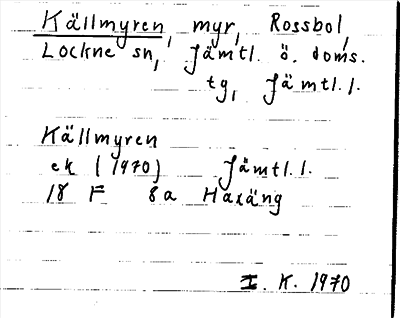 Källmyren, myr, Rossbol,
Lockne sn, Jämtl. ö. doms.
tg, Jämtl. l.
Källmyren
ek (1970) Jämtl. l.
18 F 8a Haxäng
I. K. 1970